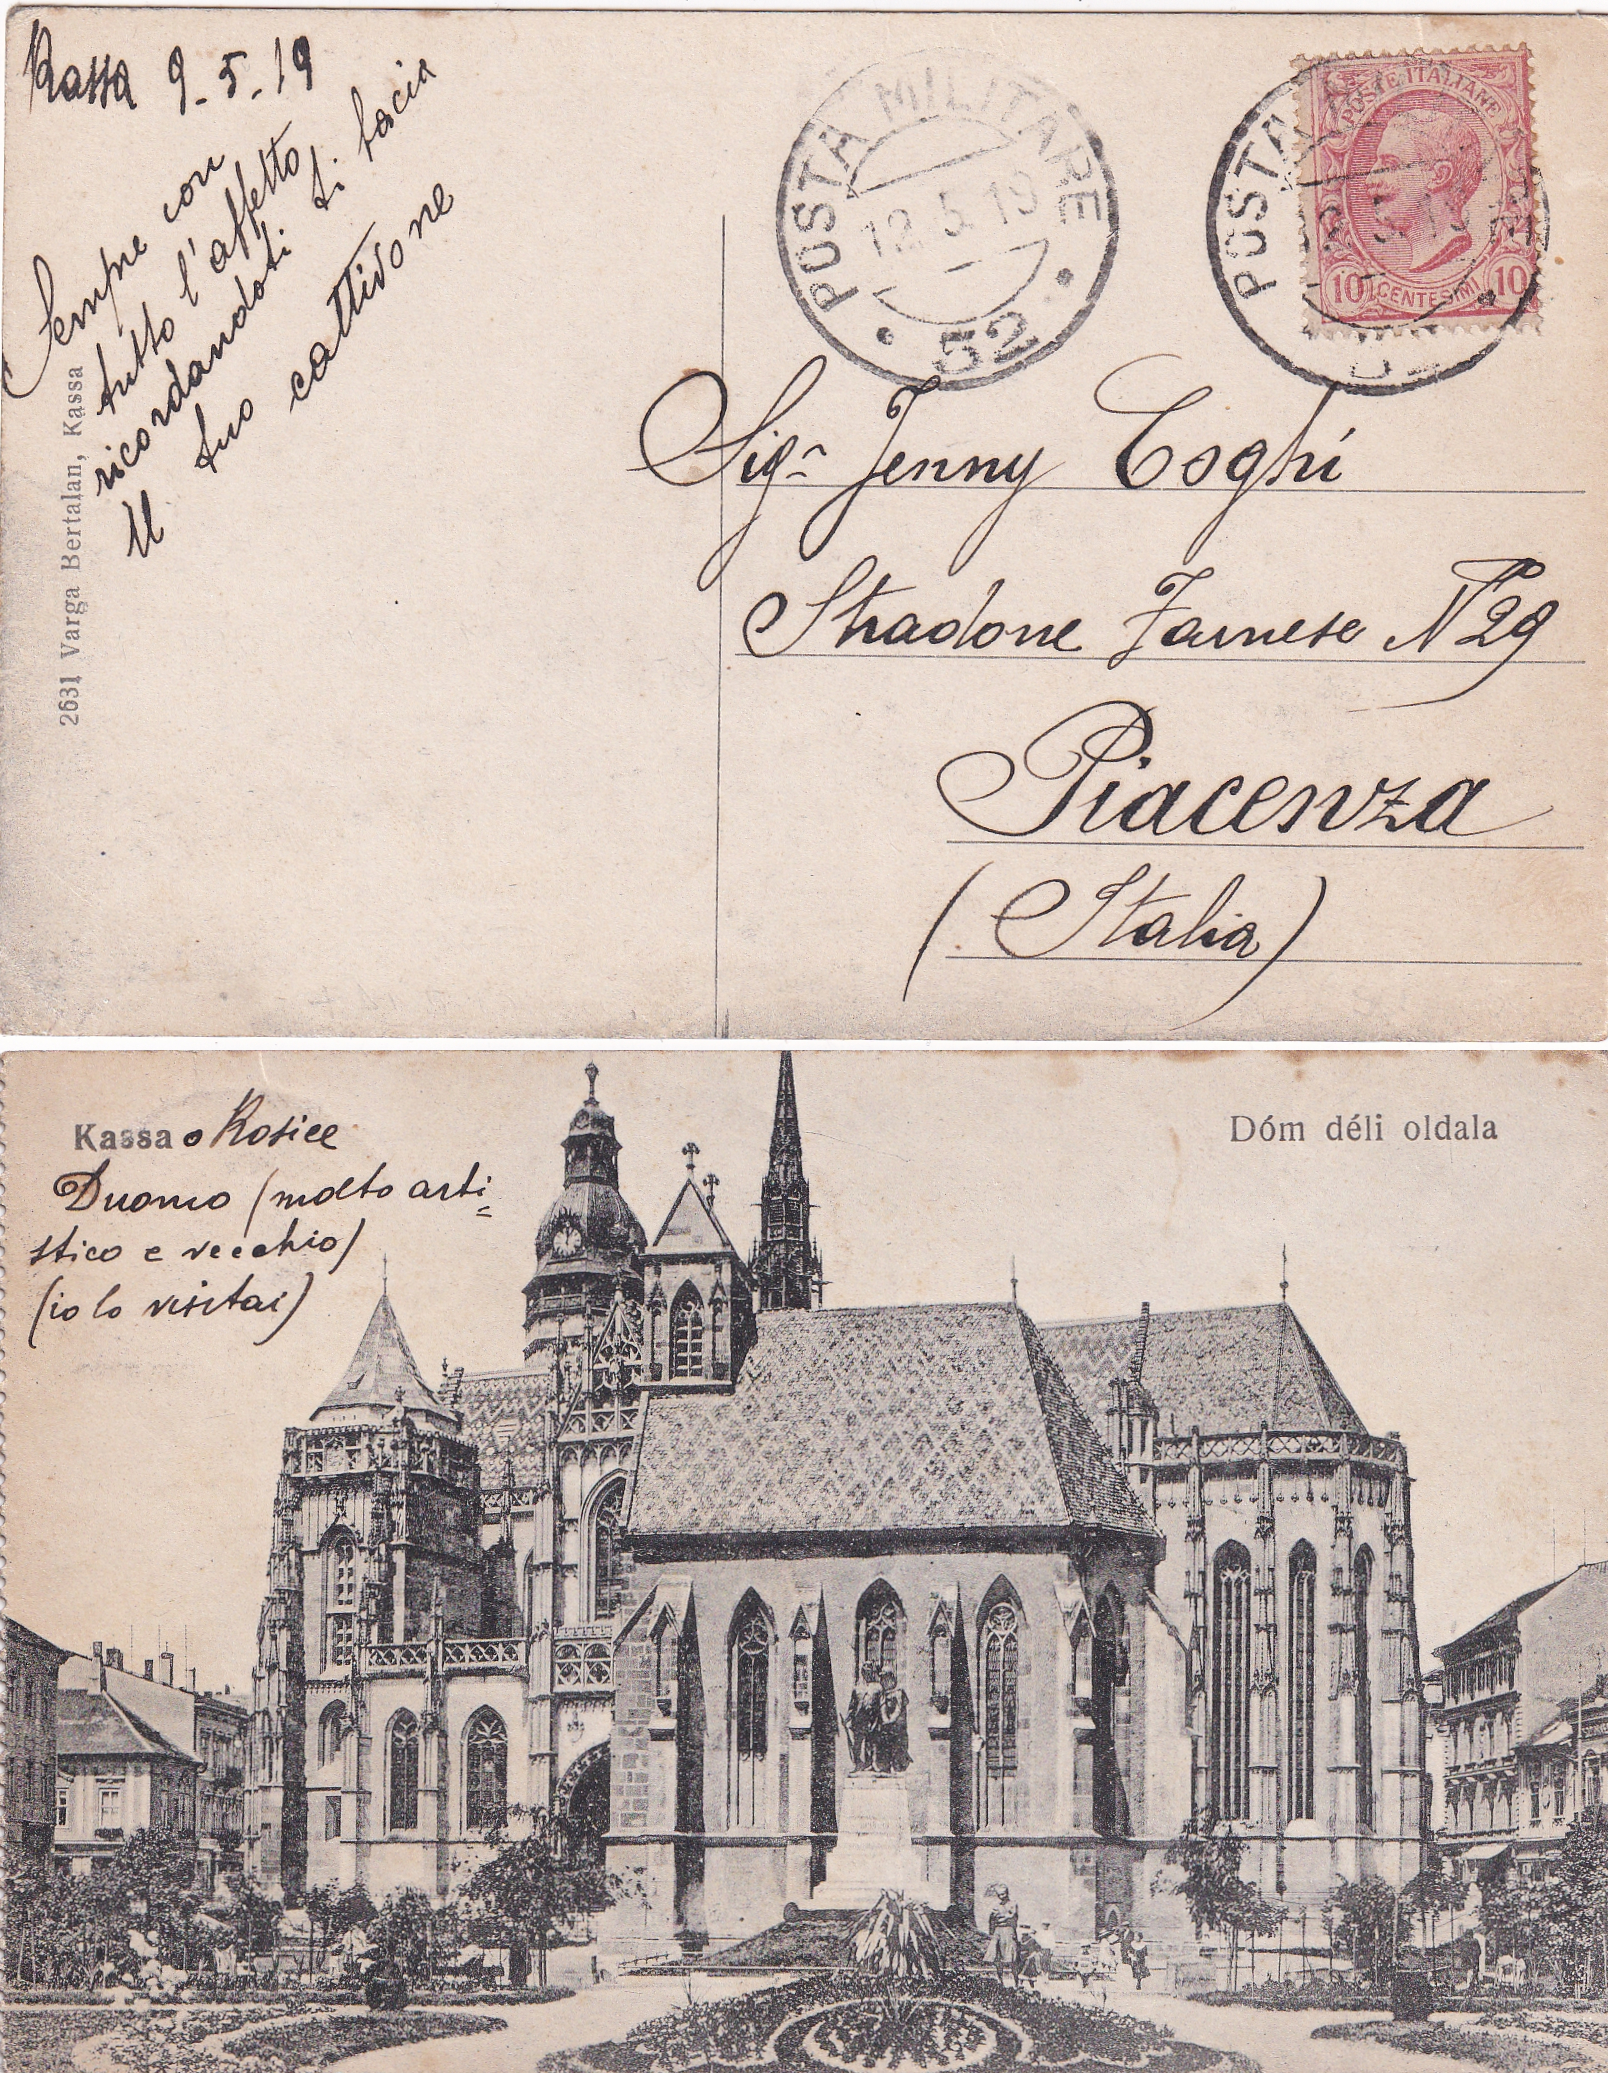 Kassa 9-5-19
Sempre con
tutto l'affetto
ricordandoti ti bacia
Il tuo cattivone
2631 Varga Bertalan, Kassa
POSTA MILITARE
12.5.19
52
POSTA
POSTE ITALIANE
10 CENTESIMI 10
Sig.ra Jenny Coghi
Stradone Farnese N° 29
Piacenza
(Italia)
Kassa o Kosice
Dóm déli oldala
Duomo (molto arti=
stico e vecchio)
(io lo visitai)